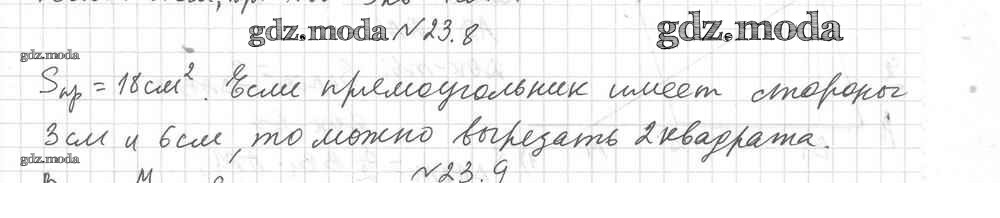 gdz.moda №23.8 gdz.moda
gdz.moda
Sпр = 18см². Если прямоугольник имеет стороны
3см и 6см, то можно вырезать 2 квадрата.
gdz.moda
№23.9